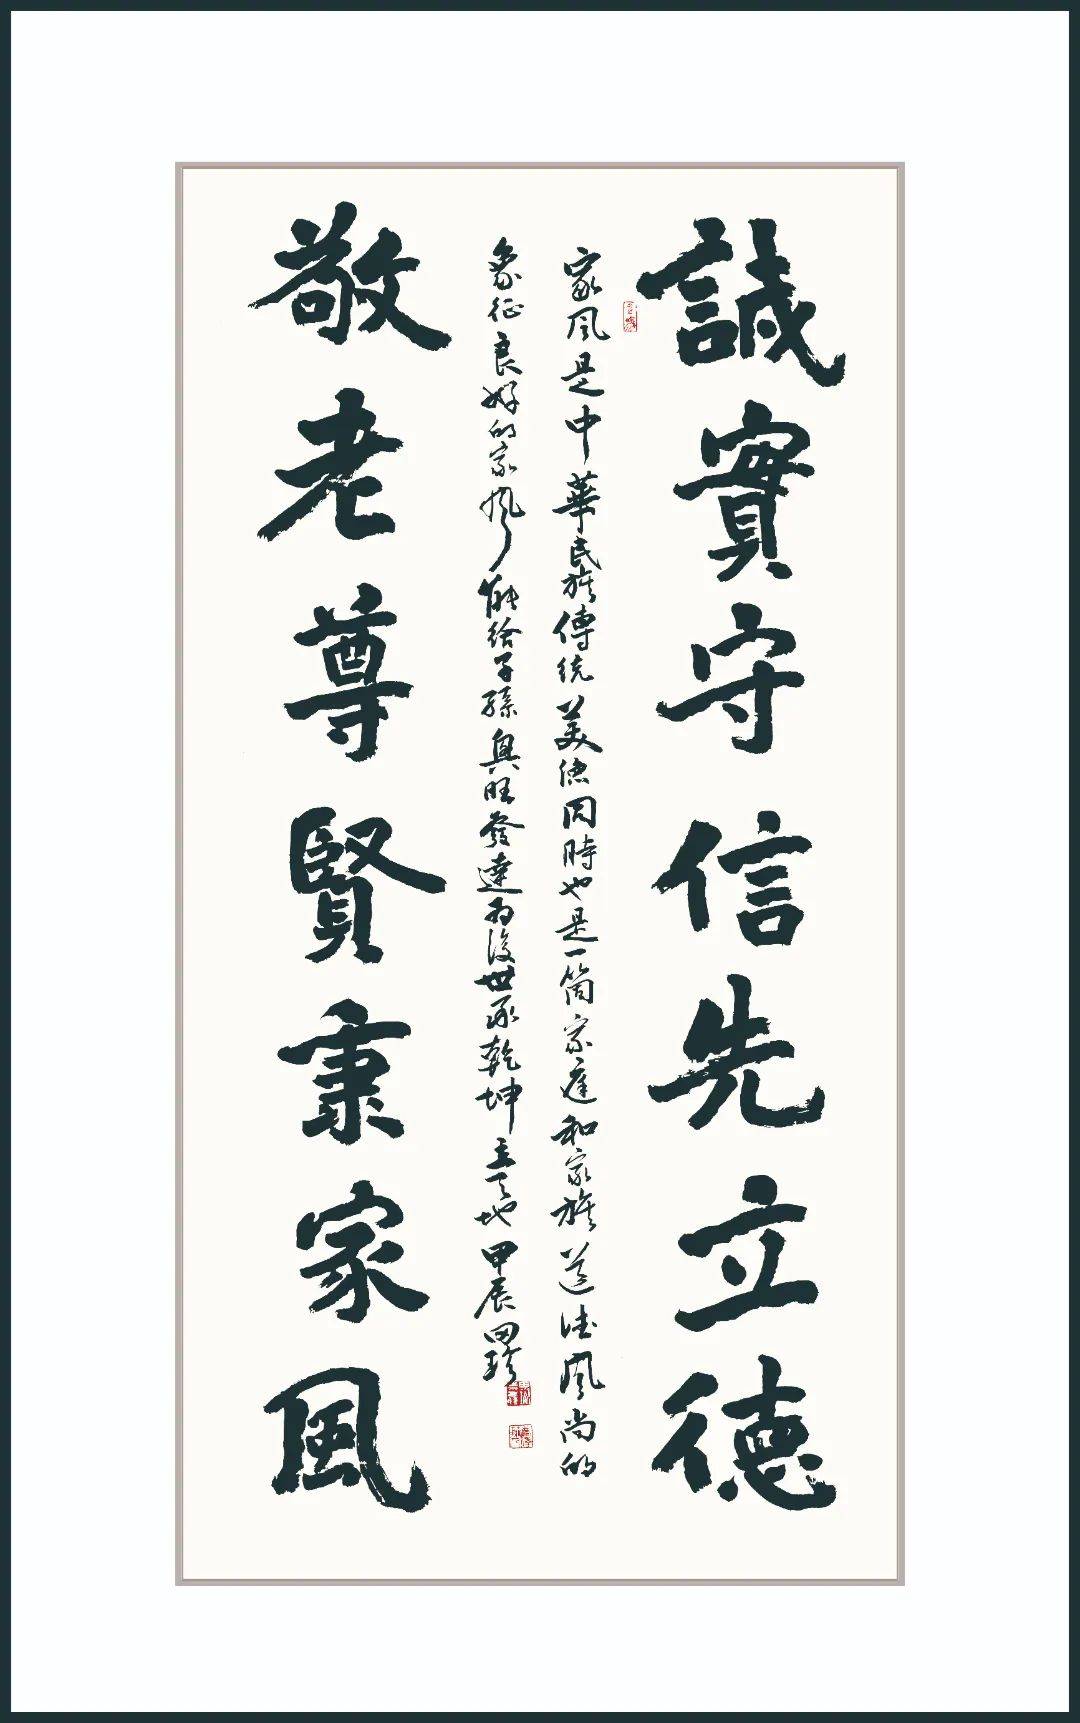 誠實守信先立德
家风是中華民族傳統美德同時也是一箇家庭和家族道德風尚的
象征良好的家风能给子孫興旺發達为後世承乾坤立天地甲辰田珍
敬老尊賢秉家風